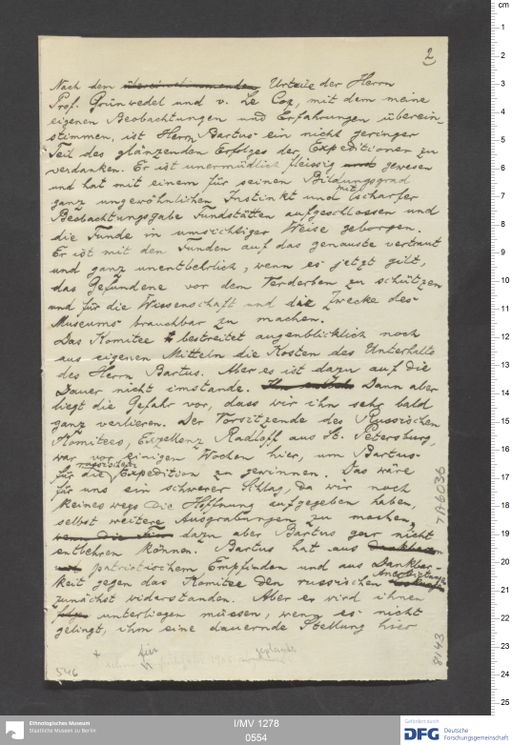 2
Nach dem übereinstimmenden Urteile der Herrn
Prof. Grünwedel und v. Le Coq, mit dem meine
eigenen Beobachtungen und Erfahrungen überein-
stimmen, ist Herrn Bartus ein nicht geringer
Teil des glänzenden Erfolges der Expeditionen zu
verdanken. Er ist unermüdlich fleissig und gewesen
und hat mit einem für seinen Bildungsgrad
ganz ungewöhnlichen Instinkt und mit scharfer
Beobachtungsgabe Fundstätten aufgeschlossen und
die Funde in umsichtiger Weise geborgen.
Er ist mit den Funden auf das genauste vertraut
und ganz unentbehrlich, wenn es jetzt gilt,
das Gefundene vor dem Verderben zu schützen
und für die Wissenschaft und die Zwecke des
Museums brauchbar zu machen.
Das Komitee bestreitet augenblicklich noch
aus eigenen Mitteln die Kosten des Unterhalts
des Herrn Bartus. Aber es ist dazu auf die
Dauer nicht imstande. Dann aber
liegt die Gefahr vor, dass wir ihn sehr bald
ganz verlieren. Der Vorsitzende des Russischen
Komitees, Exzellenz Radloff aus St. Petersburg,
war vor einigen Wochen hier, um Bartus
für die russischen Expedition zu gewinnen. Das wäre
für uns ein schwerer Schlag, da wir noch
keineswegs die Hoffnung aufgegeben haben,
selbst weitere Ausgrabungen zu machen,
dazu aber Bartus gar nicht
entbehren können. Bartus hat aus
patriotischem Empfinden und aus Dankbar-
keit gegen das Komitee den russischen Anerbietungen
zunächst widerstanden. Aber er wird ihnen
unterliegen müssen, wenn es nicht
gelingt, ihm eine dauernde Stellung hier
für
546
7A6036
8143
Ethnologisches Museum
Staatliche Museen zu Berlin
I/MV 1278
0554
Gefördert durch
DFG Deutsche
Forschungsgemeinschaft
cm
1
2
3
4
5
6
7
8
9
10
11
12
13
14
15
16
17
18
19
20
21
22
23
24
25